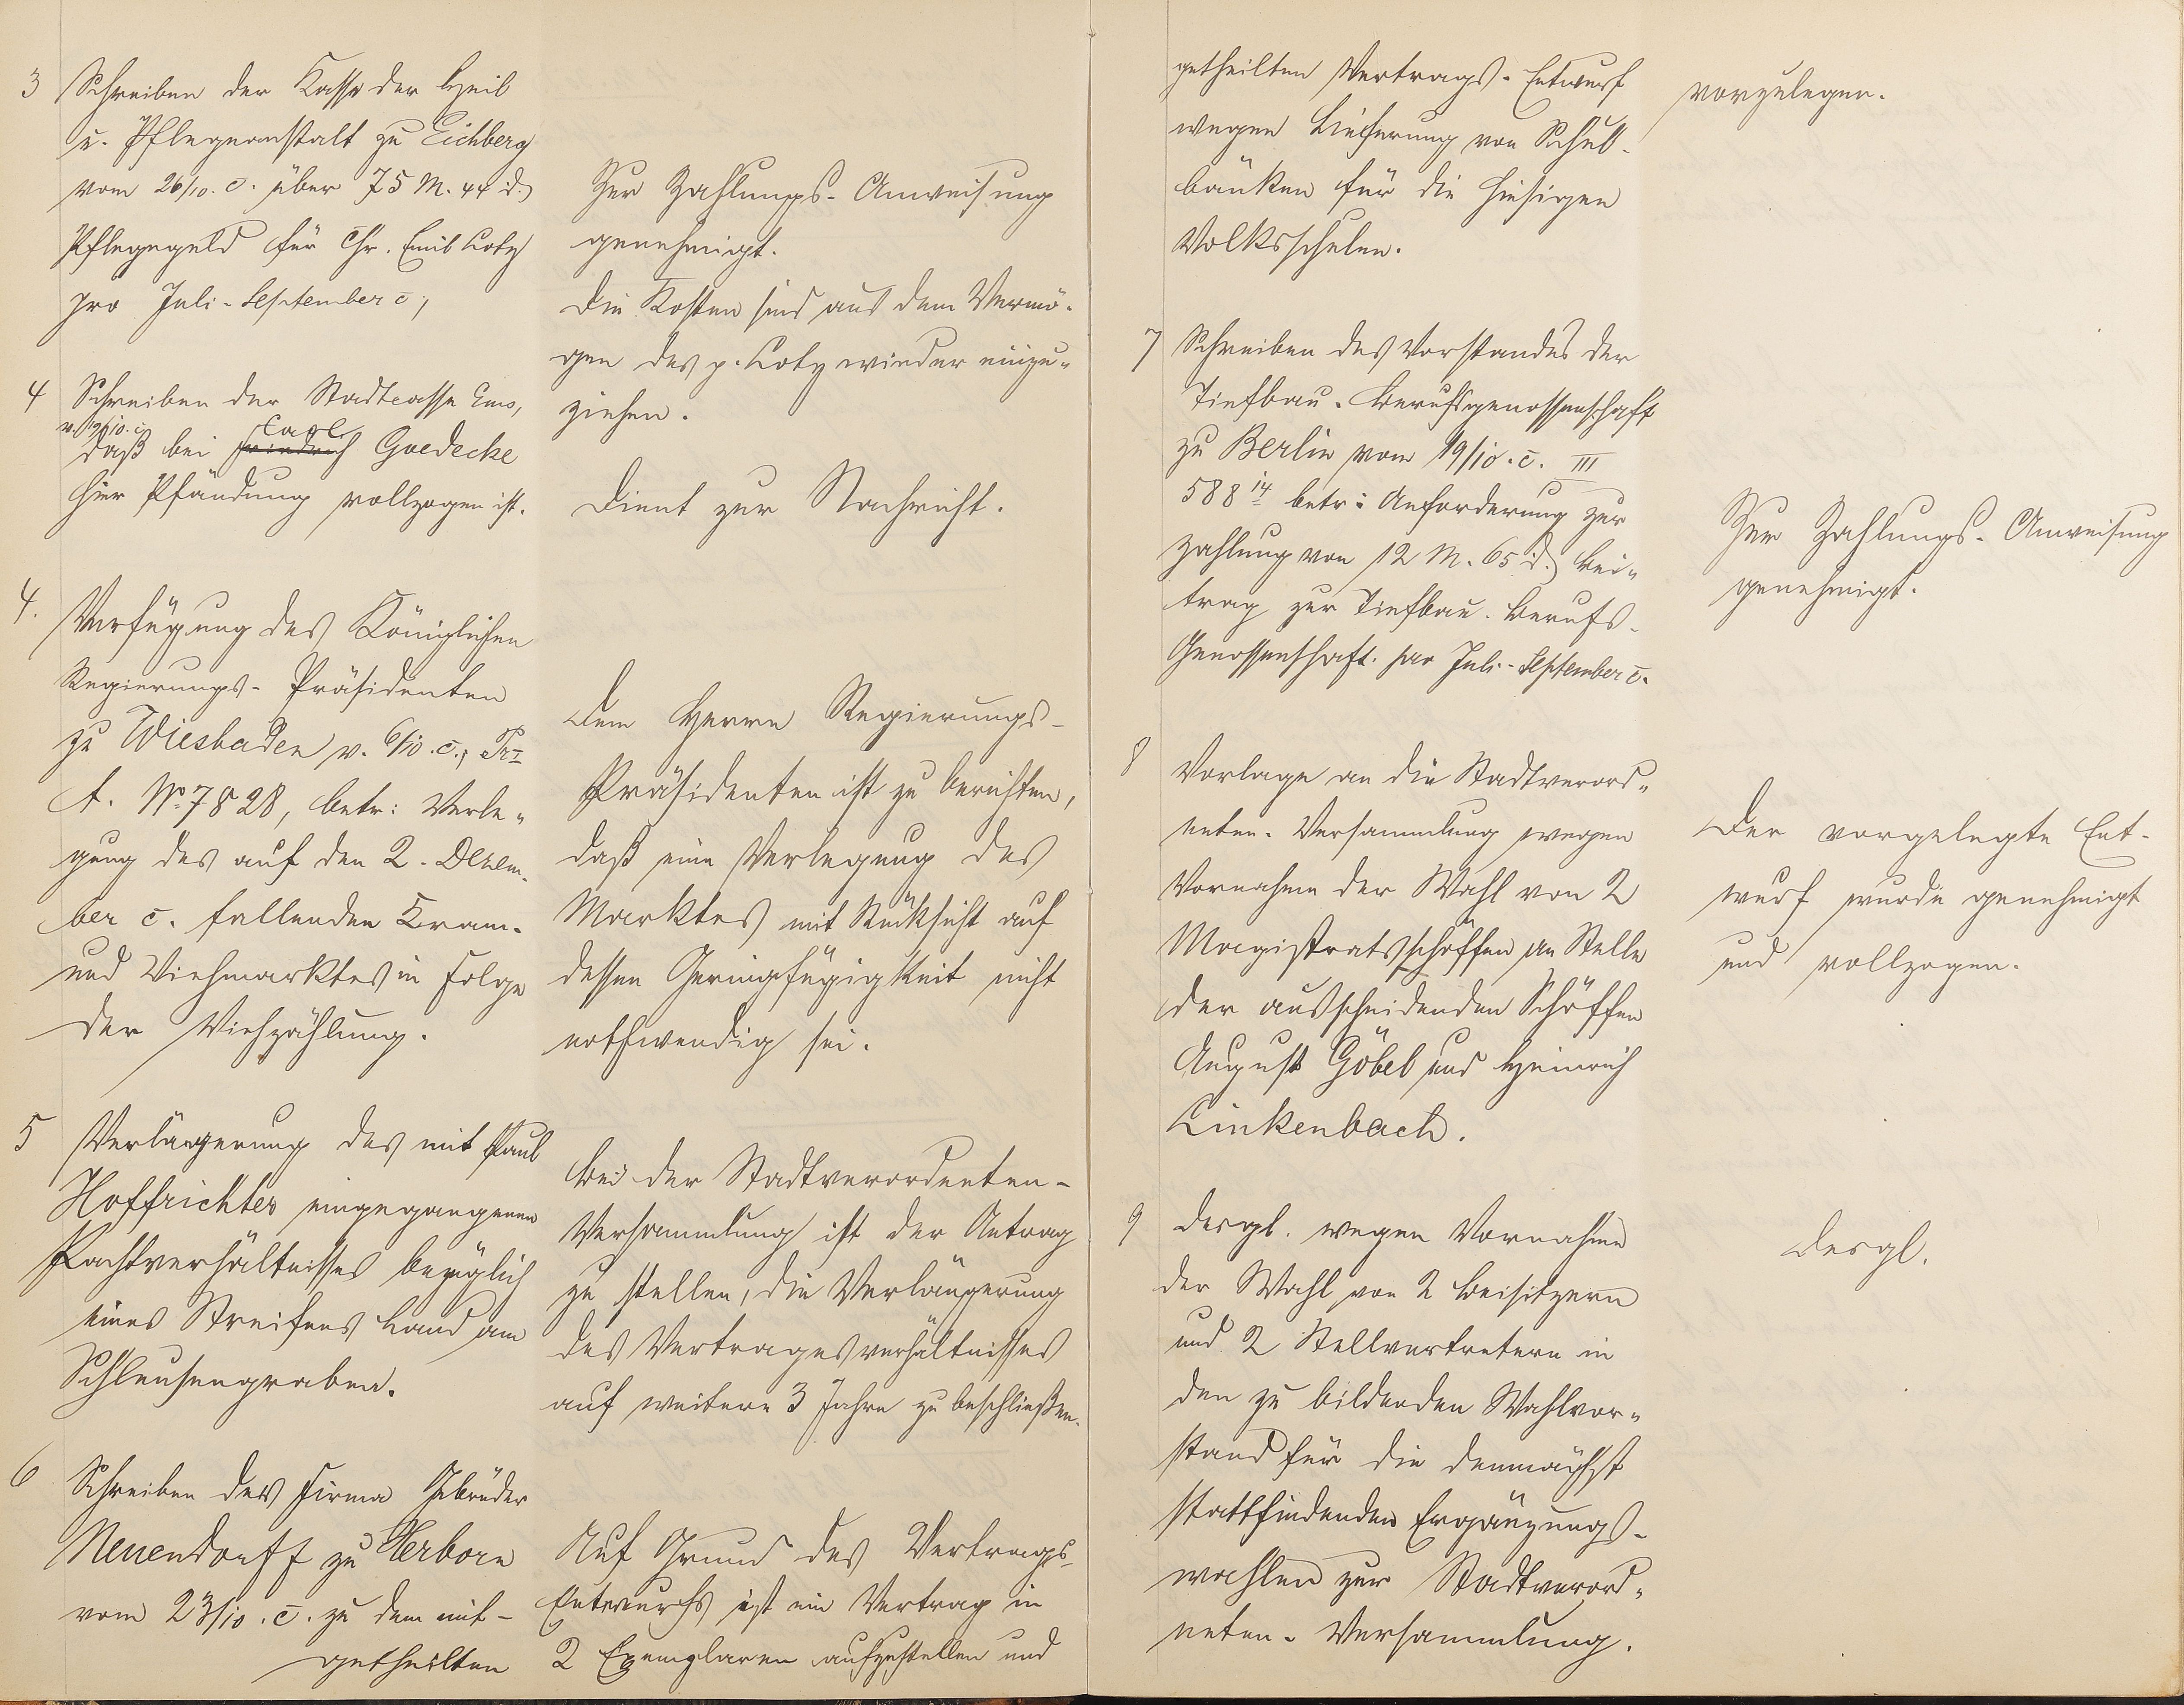 3 Schreiben der Kasse der Heil
u. Pflegeanstalt zu Eichberg
vom 26/10. c. über 75 M. 44 d.
Pflegegeld für Chr. Emil Lotz
pro Juli-September c,
Zur Zahlungs-Anweisung
genehmigt.
Die Kosten sind aus dem Vermö-
gen des p. Lotz wieder einzu-
ziehen.
4 Schreiben der Stadtcasse Ems,
v. 19/10. c.
Carl
daß bei Friedrich Goedecke
hier Pfändung vollzogen ist.
Dient zur Nachricht.
4. Verfügung des Königlichen
Regierungs-Präsidenten
zu Wiesbaden v. 6/10. c.,
A. No. 7828, betr: Verle-
gung des auf den 2. Dezem-
ber c. fallenden Kram-
und Viehmarktes in Folge
der Viehzählung.
Dem Herrn Regierungs-
Präsidenten ist zu berichten,
daß eine Verlegung des
Marktes mit Rücksicht auf
dessen Geringfügigkeit nicht
nothwendig sei.
5 Verlängerung des mit Paul
Hoffrichter eingegangenen
Pachtverhältnisses bezüglich
eines Streifens Land am
Schleusengraben.
Bei der Stadtverordneten-
Versammlung ist der Antrag
zu stellen, die Verlängerung
des Vertragesverhältnisses
auf weitere 3 Jahre zu beschließen.
6 Schreiben der Firma Gebrüder
Neuendorff zu Herborn
vom 23/10. c. zu dem mit-
getheilten
Auf Grund des Vertrags-
Entwurfs ist ein Vertrag in
2 Exemplaren aufzustellen und
getheilten Vertrags-Entwurf
wegen Lieferung von Schul-
bänken für die hiesigen
Volksschulen.
vorzulegen.
7 Schreiben des Vorstandes der
Tiefbau-Berufsgenossenschaft
zu Berlin vom 19/10. c. III
588 14 betr: Anforderung zur
Zahlung von 12 M. 65 d. Bei-
trag zur Tiefbau-Berufs-
Genossenschaft pro Juli-September c.
Zur Zahlungs-Anweisung
genehmigt.
8 Vorlage an die Stadtverord-
neten-Versammlung wegen
Vornahme der Wahl von 2
Magistratsschöffen an Stelle
der ausscheidenden Schöffen
August Göbel und Heinrich
Linkenbach.
Der vorgelegte Ent-
wurf wurde genehmigt
und vollzogen.
9 desgl. wegen Vornahme
der Wahl von 2 Beisitzern
und 2 Stellvertretern in
den zu bildenden Wahlvor-
stand für die demnächst
stattfindenden Ergänzungs-
wahlen zur Stadtverord-
neten-Versammlung.
desgl.